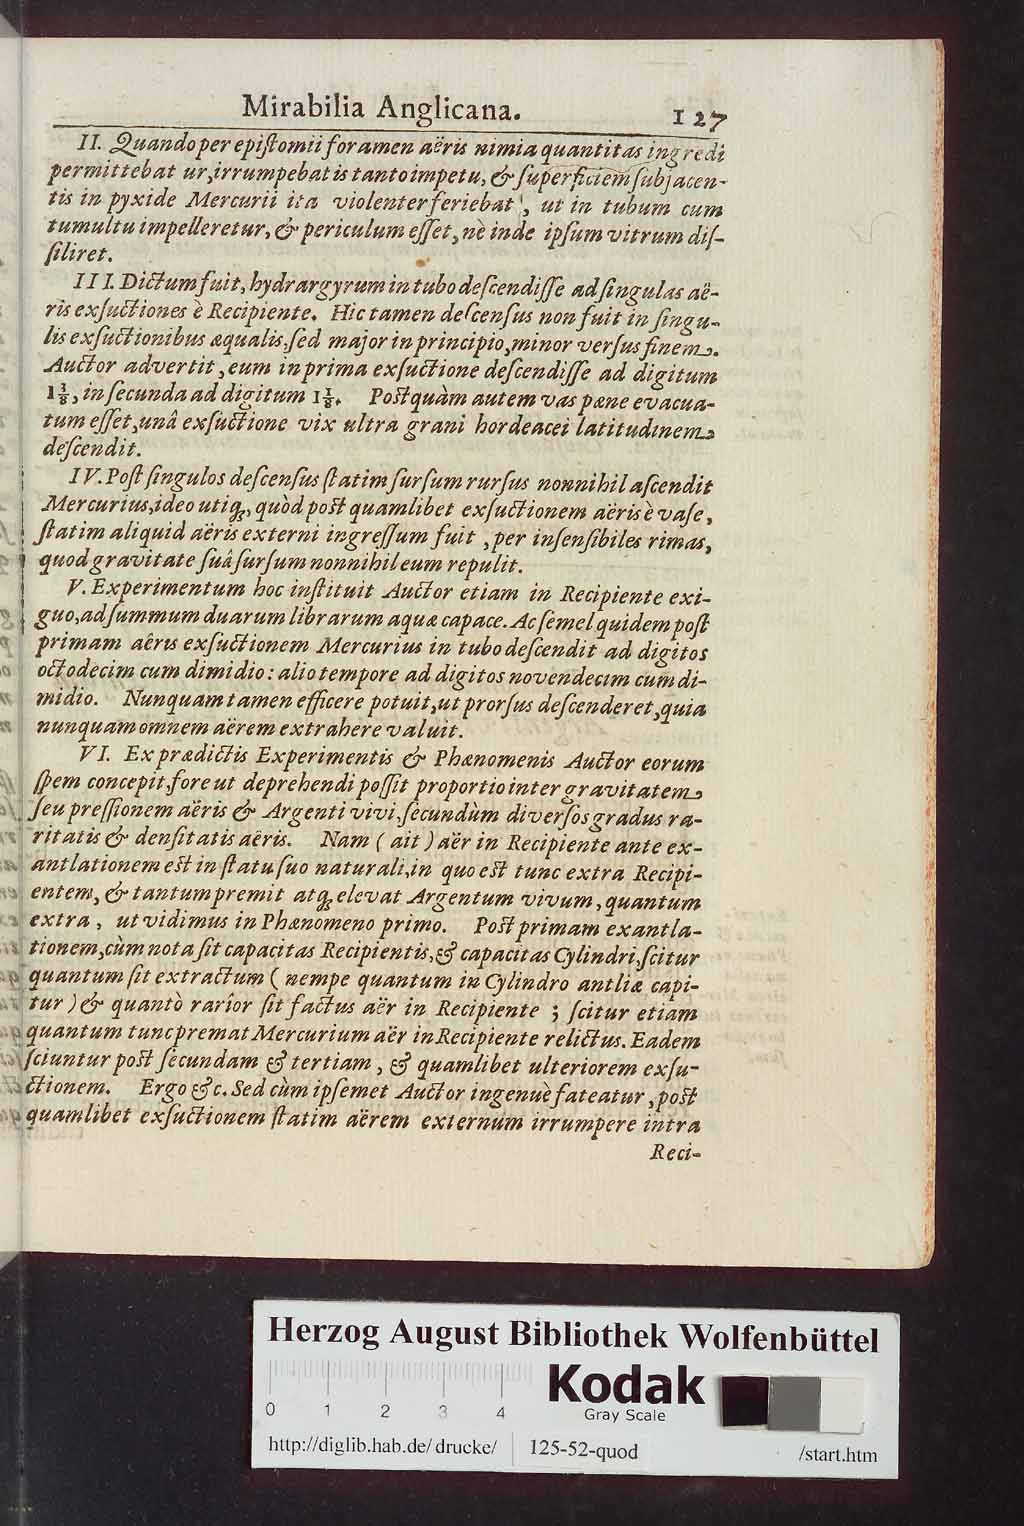 Mirabilia Anglicana. 127
II. Quando per epiſtomii foramen aëris nimia quantitas ingredi
permittebatur, irrumpebat is tanto impetu, & ſuperficiem ſubjacen-
tis in pyxide Mercurii ita violenter feriebat, ut in tubum cum
tumultu impelleretur, & periculum eſſet, nè inde ipſum vitrum diſ-
ſiliret.
III. Dictum fuit, hydrargyrum in tubo deſcendiſſe ad ſingulas aë-
ris exſuctiones è Recipiente. Hic tamen deſcenſus non fuit in ſingu-
lis exſuctionibus æqualis, ſed major in principio, minor verſus finem.
Auctor advertit, eum in prima exſuctione deſcendiſſe ad digitum
1⅜, in ſecunda ad digitum 1⅛. Poſtquàm autem vas pæne evacua-
tum eſſet, unâ exſuctione vix ultra grani hordeacei latitudinem
deſcendit.
IV. Poſt ſingulos deſcenſus ſtatim ſurſum rurſus nonnihil aſcendit
Mercurius, ideo utiq;, quòd poſt quamlibet exſuctionem aëris è vaſe,
ſtatim aliquid aëris externi ingreſſum fuit, per inſenſibiles rimas,
quod gravitate ſuâ ſurſum nonnihil eum repulit.
V. Experimentum hoc inſtituit Auctor etiam in Recipiente exi-
guo, ad ſummum duarum librarum aquæ capace. Ac ſemel quidem poſt
primam aêris exſuctionem Mercurius in tubo deſcendit ad digitos
octodecim cum dimidio: alio tempore ad digitos novendecim cum di-
midio. Nunquam tamen efficere potuit, ut prorſus deſcenderet, quia
nunquam omnem aërem extrahere valuit.
VI. Ex prædictis Experimentis & Phænomenis Auctor eorum
ſpem concepit, fore ut deprehendi poſſit proportio inter gravitatem
ſeu preſſionem aëris & Argenti vivi, ſecundùm diverſos gradus ra-
ritatis & denſitatis aêris. Nam ( ait ) aër in Recipiente ante ex-
antlationem eſt in ſtatu ſuo naturali, in quo eſt tunc extra Recipi-
entem, & tantum premit atq; elevat Argentum vivum, quantum
extra, ut vidimus in Phænomeno primo. Poſt primam exantla-
tionem, cùm nota ſit capacitas Recipientis, & capacitas Cylindri, ſcitur
quantum ſit extractum ( nempe quantum in Cylindro antliæ capi-
tur ) & quantò rarior ſit factus aër in Recipiente ; ſcitur etiam
quantum tunc premat Mercurium aër in Recipiente relictus. Eadem
ſciuntur poſt ſecundam & tertiam, & quamlibet ulteriorem exſu-
ctionem. Ergo &c. Sed cùm ipſemet Auctor ingenuè fateatur, poſt
quamlibet exſuctionem ſtatim aërem externum irrumpere intra
Reci-
Herzog August Bibliothek Wolfenbüttel
Kodak
Gray Scale
0 1 2 3 4
http://diglib.hab.de/drucke/ 125-52-quod /start.htm